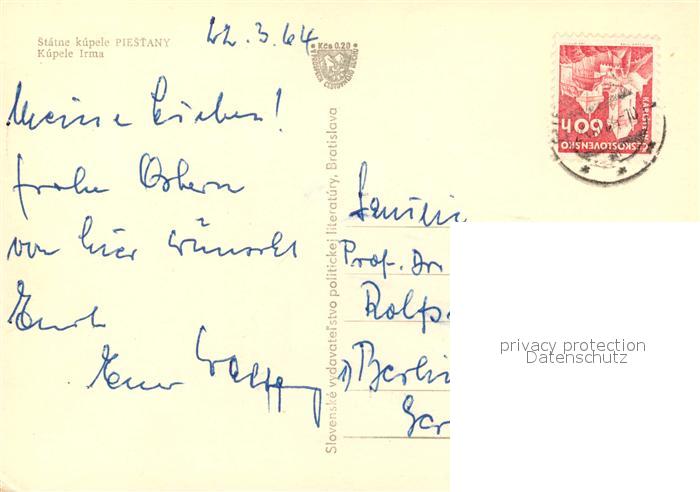 Štátne kúpele PIEŠŤANY
Kúpele Irma
22.3.64
Kčs 0,20
Meine Lieben!
frohe Ostern
von hier wünscht
Euch
Euer Wolfgang
Slovenské vydavateľstvo politickej literatúry, Bratislava
60 h
ČESKOSLOVENSKO
Familie
Prof. Dr.
Rolf
1) Berlin
Ger
privacy protection
Datenschutz